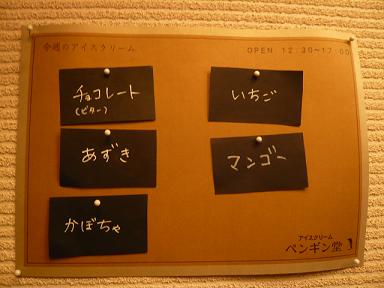 今週のアイスクリーム
OPEN 12:30~17:00
チョコレート
(ビター)
いちご
あずき
マンゴー
かぼちゃ
アイスクリーム
ペンギン堂